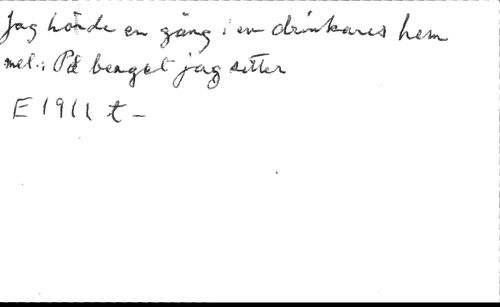 Jag hörde en gång i en drinkares hem
mel.: På berget jag sitter
E 1911 t –